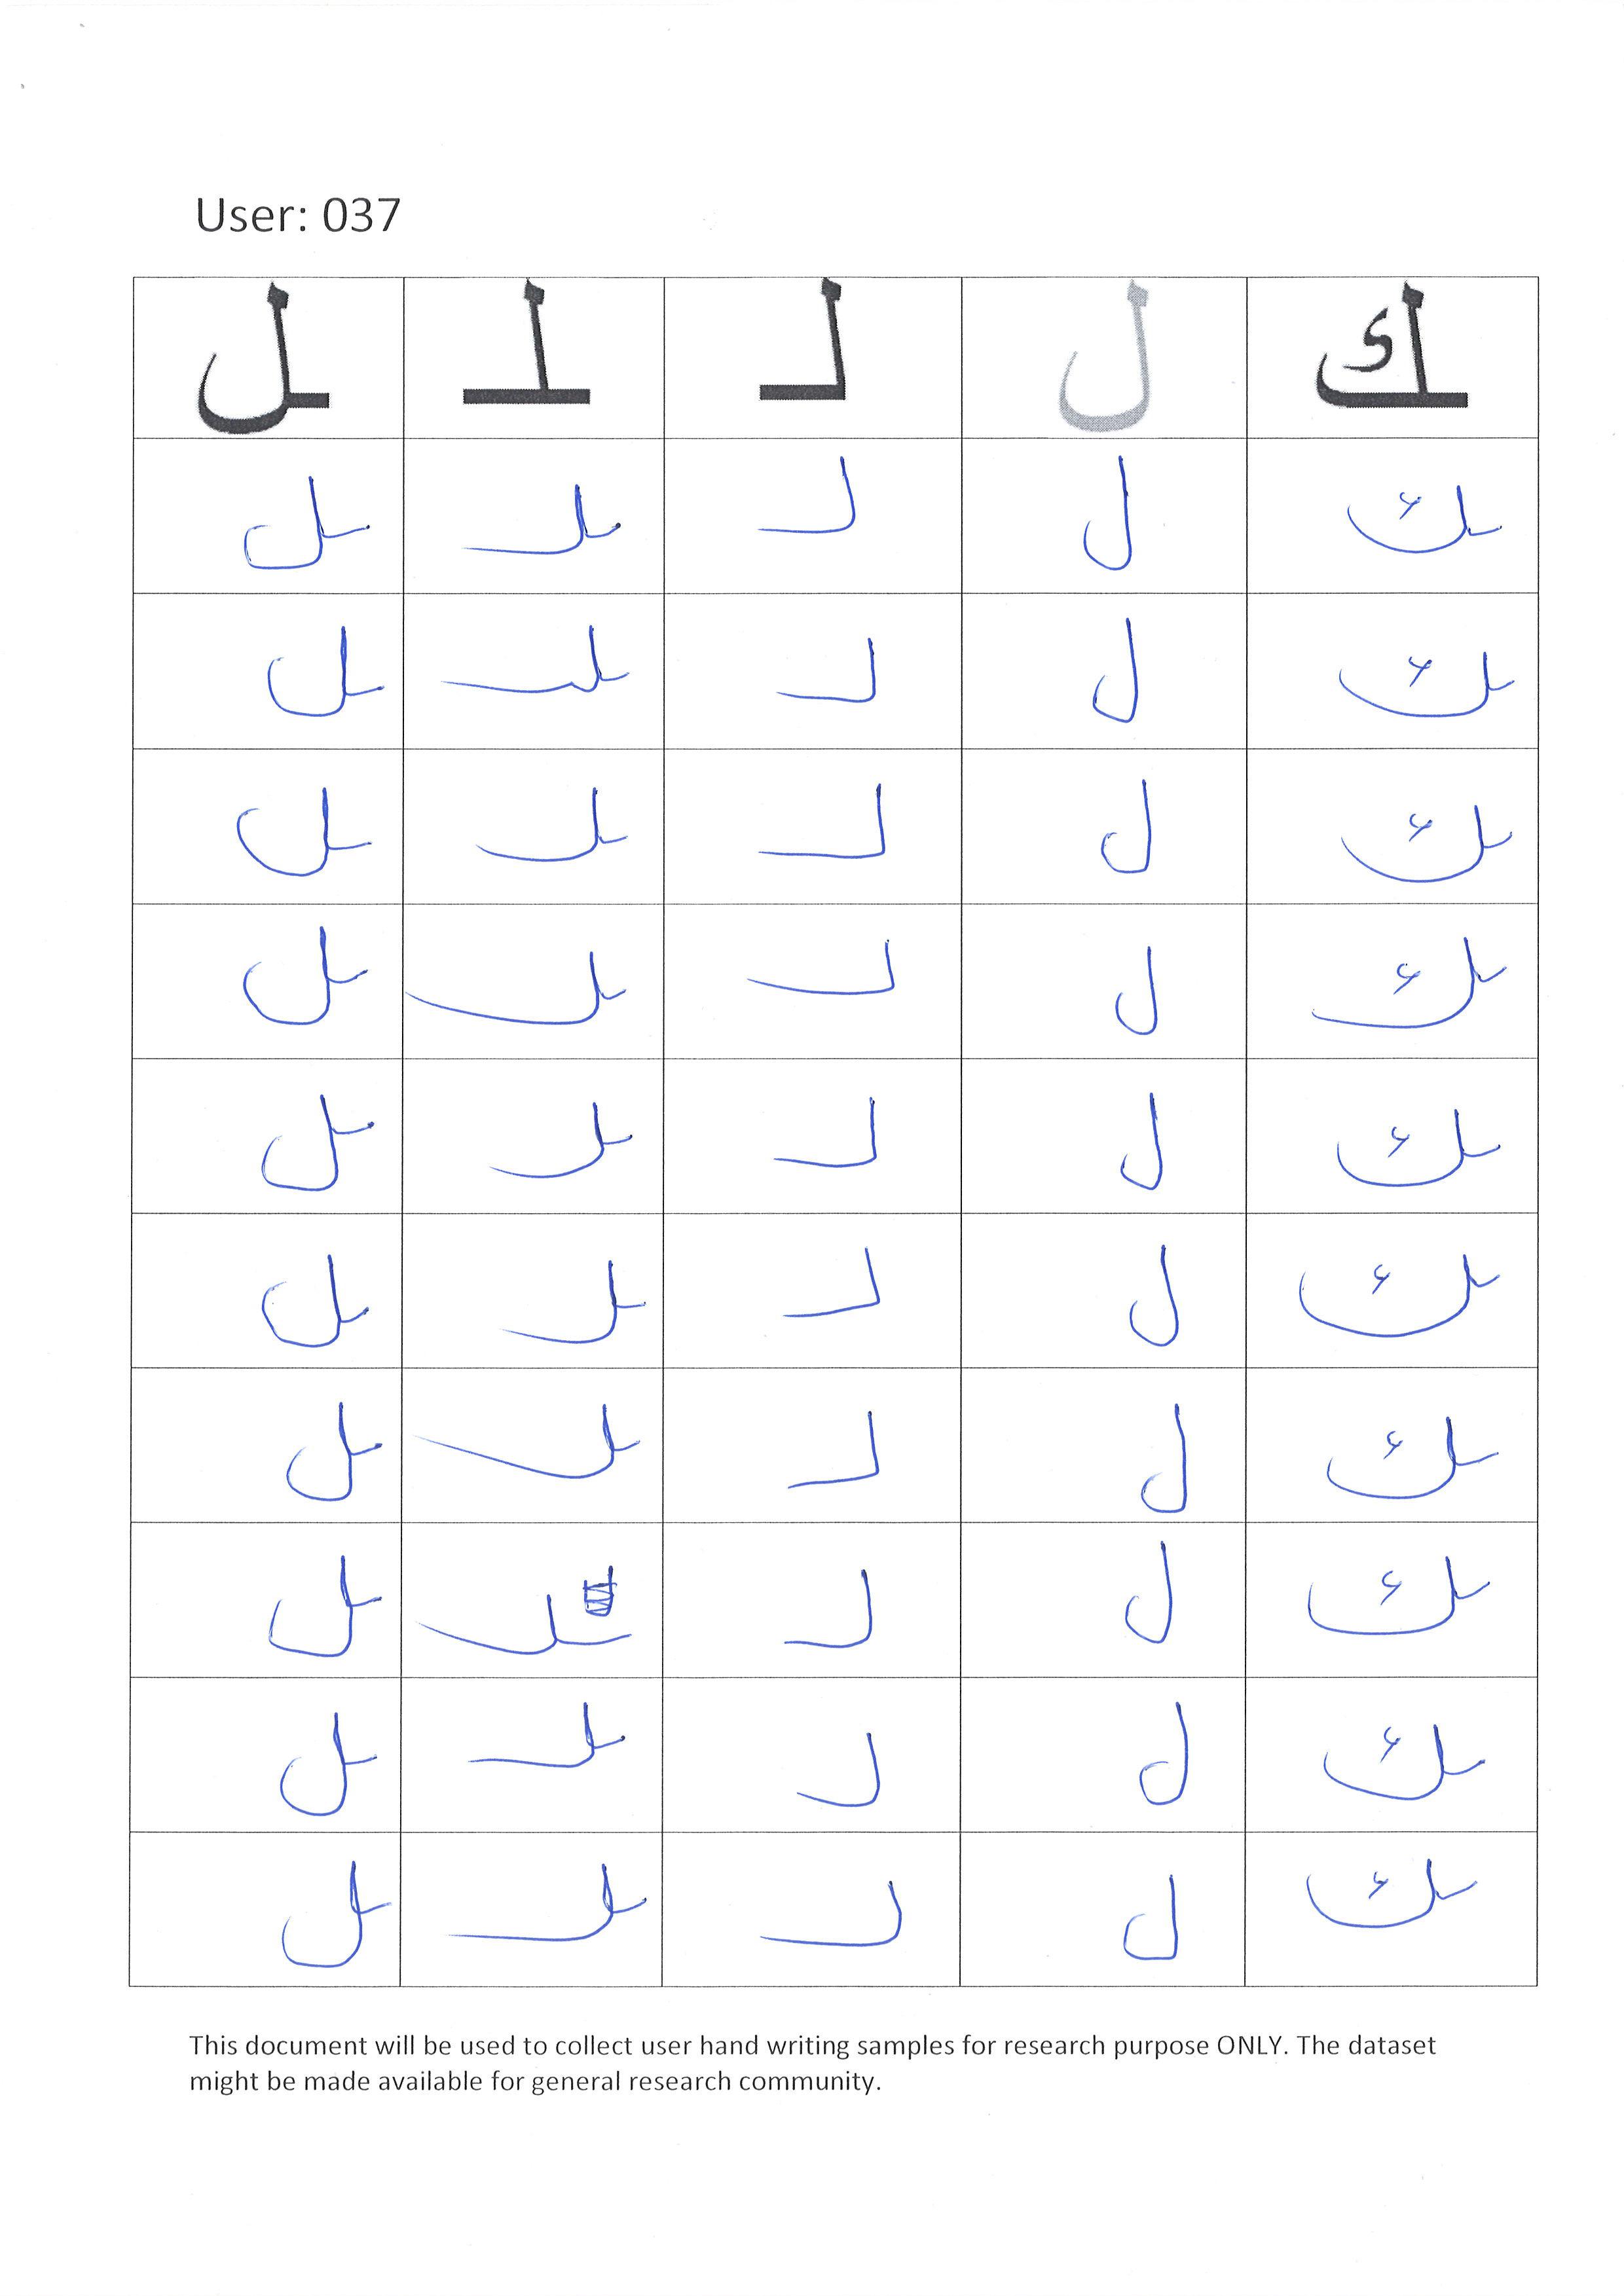 User: 037
ك ل لـ ـلـ ـل
ـك ل لـ ـلـ ـل
ـك ل لـ ـلـ ـل
ـك ل لـ ـلـ ـل
ـك ل لـ ـلـ ـل
ـك ل لـ ـلـ ـل
ـك ل لـ ـلـ ـل
ـك ل لـ ـلـ ـل
ـك ل لـ ـلـ ـل
ـك ل لـ ـلـ ـل
ـك ل لـ ـلـ ـل
This document will be used to collect user hand writing samples for research purpose ONLY. The dataset
might be made available for general research community.